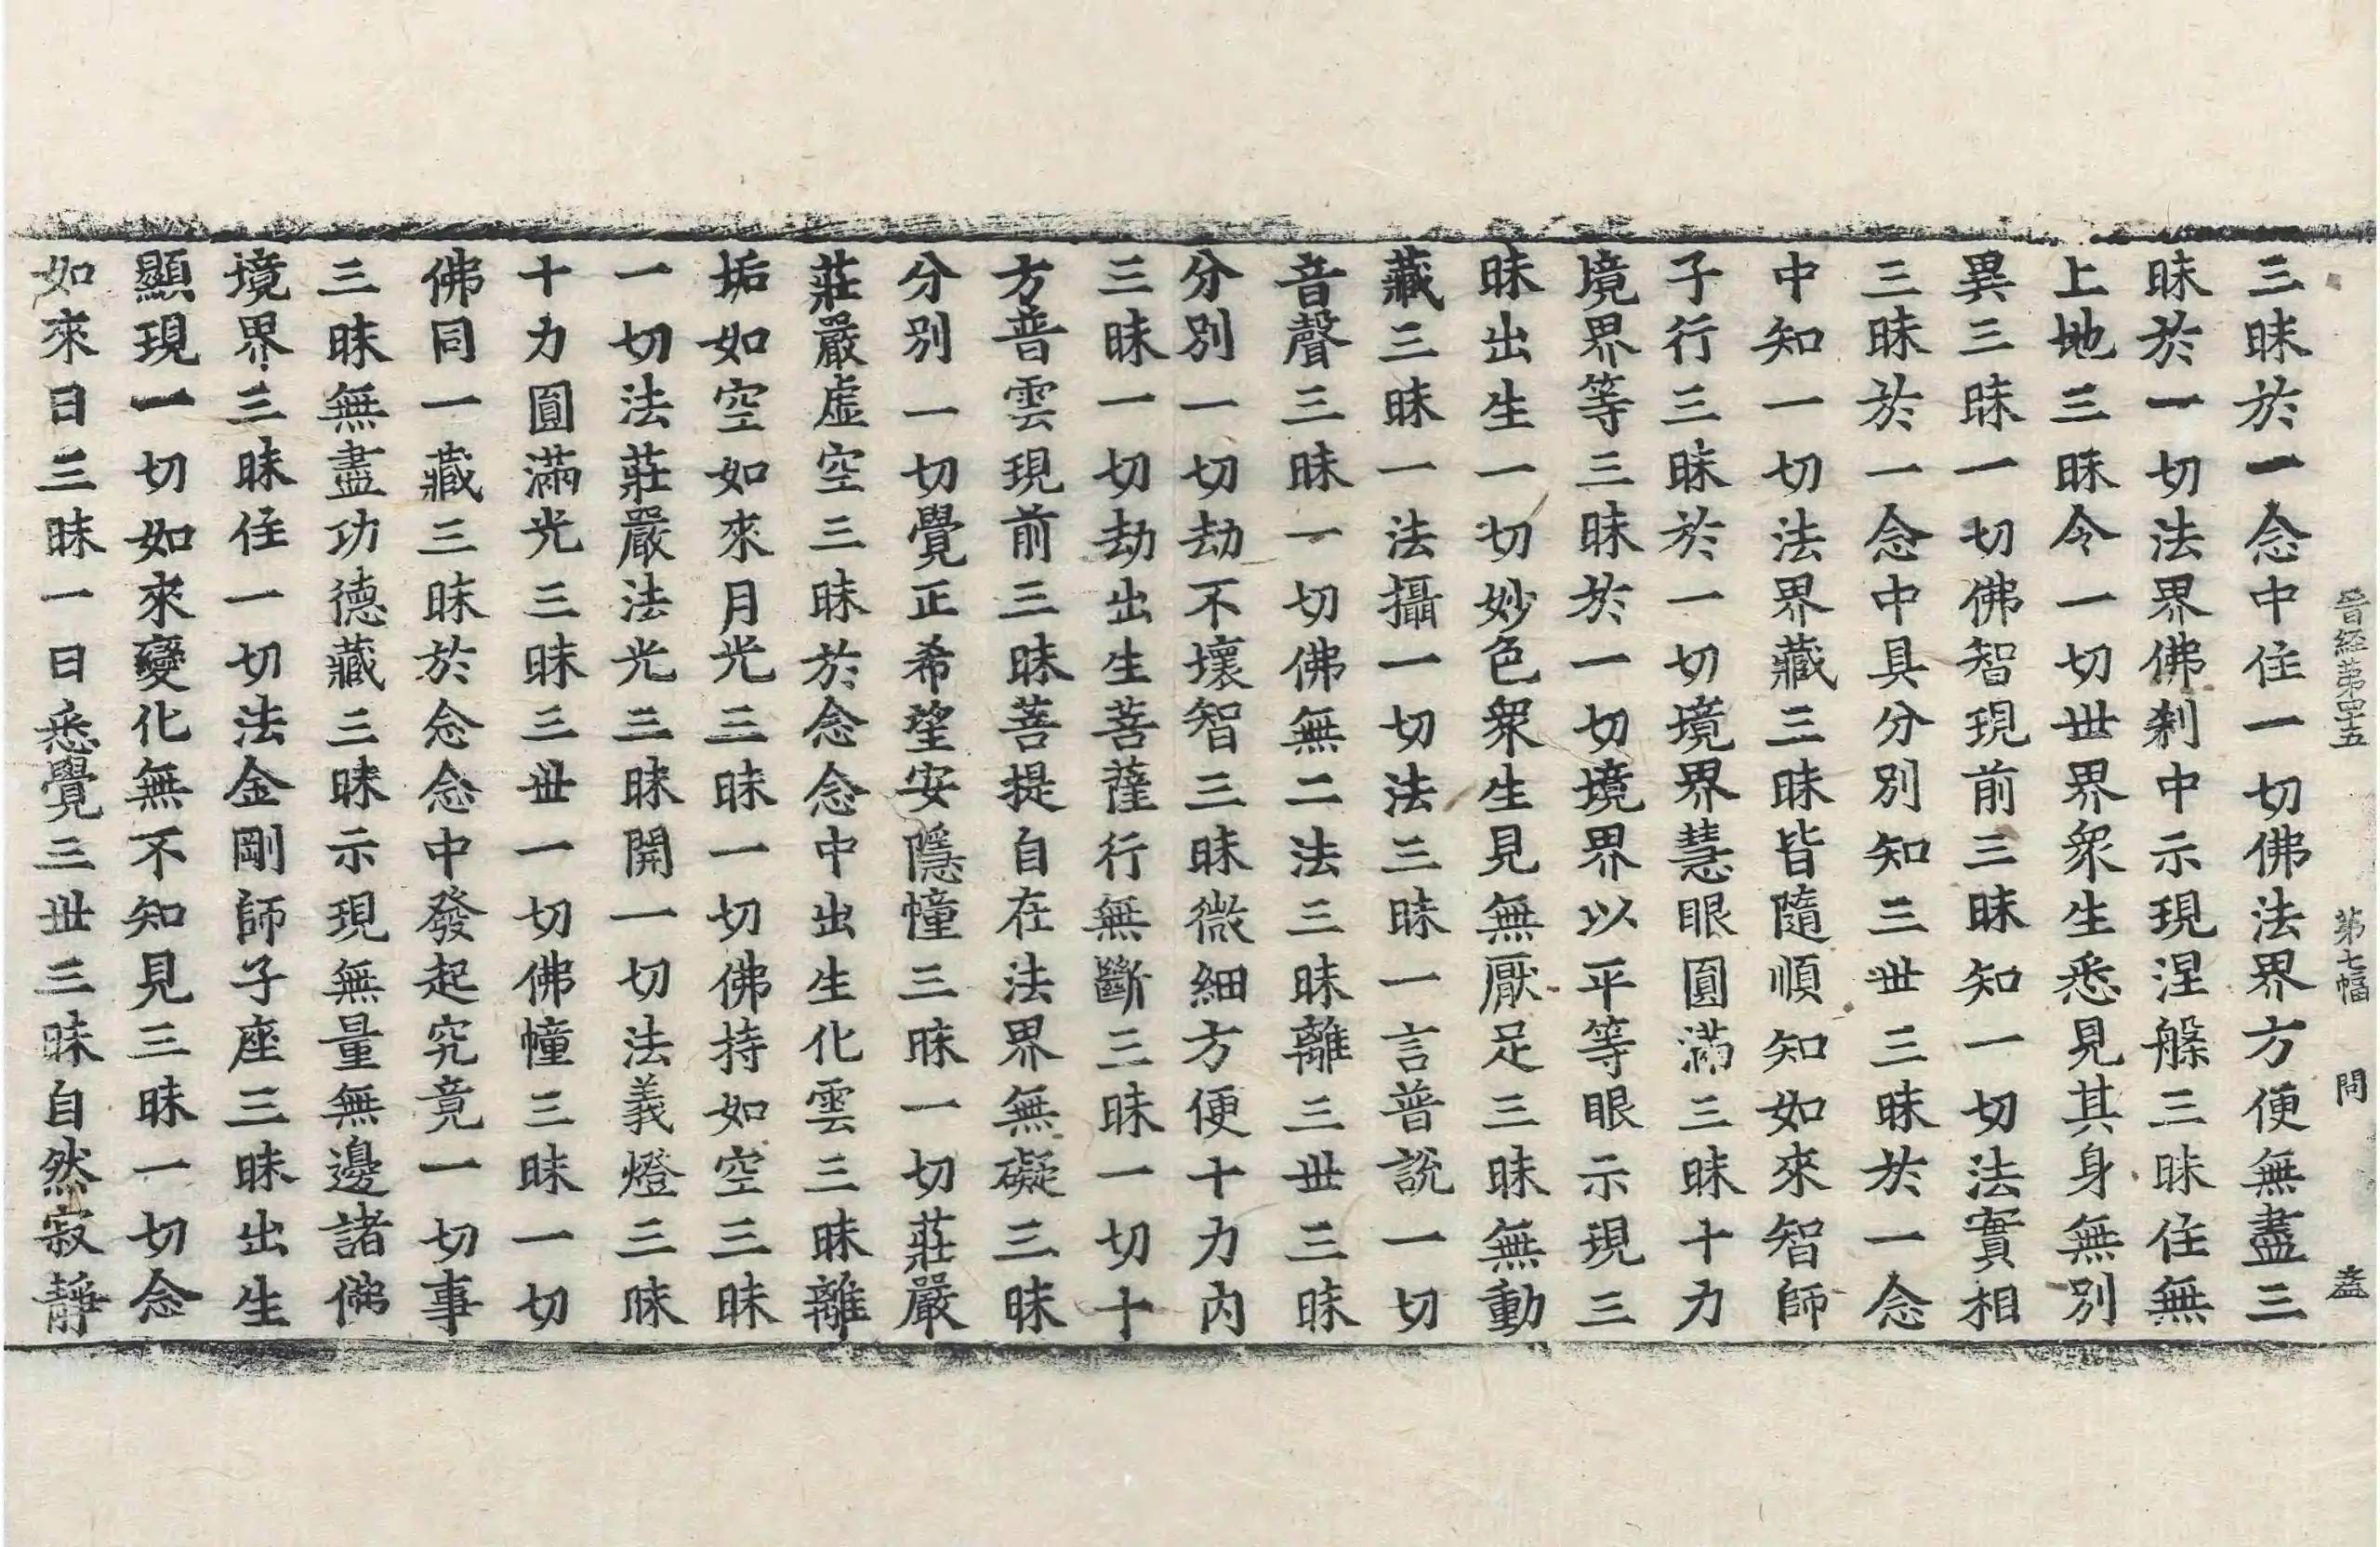 晉経苐四十五 苐七幅 問 盍
三昧於一念中住一切佛法界方便無盡三
昧於一切法界佛剎中示現涅槃三昧住無
上地三昧令一切世界衆生悉見其身無別
異三昧一切佛智現前三昧知一切法實相
三昧於一念中具分別知三世三昧於一念
中知一切法界藏三昧皆隨順知如來智師
子行三昧於一切境界慧眼圓滿三昧十力
境界等三昧於一切境界以平等眼示現三
昧出生一切妙色衆生見無厭足三昧無動
藏三昧一法攝一切法三昧一言普說一切
音聲三昧一切佛無二法三昧離三世三昧
分別一切劫不壞智三昧微細方便十力內
三昧一切劫出生菩薩行無斷三昧一切十
方普雲現前三昧菩提自在法界無礙三昧
分別一切覺正希望安隱幢三昧一切莊嚴
莊嚴虛空三昧於念念中出生化雲三昧離
垢如空如來月光三昧一切佛持如空三昧
一切法莊嚴法光三昧開一切法義燈三昧
十力圓滿光三昧三世一切佛幢三昧一切
佛同一藏三昧於念念中發起究竟一切事
三昧無盡功德藏三昧示現無量無邊諸佛
境界三昧住一切法金剛師子座三昧出生
顯現一切如來變化無不知見三昧一切念
如來日三昧一日悉覺三世三昧自然寂靜